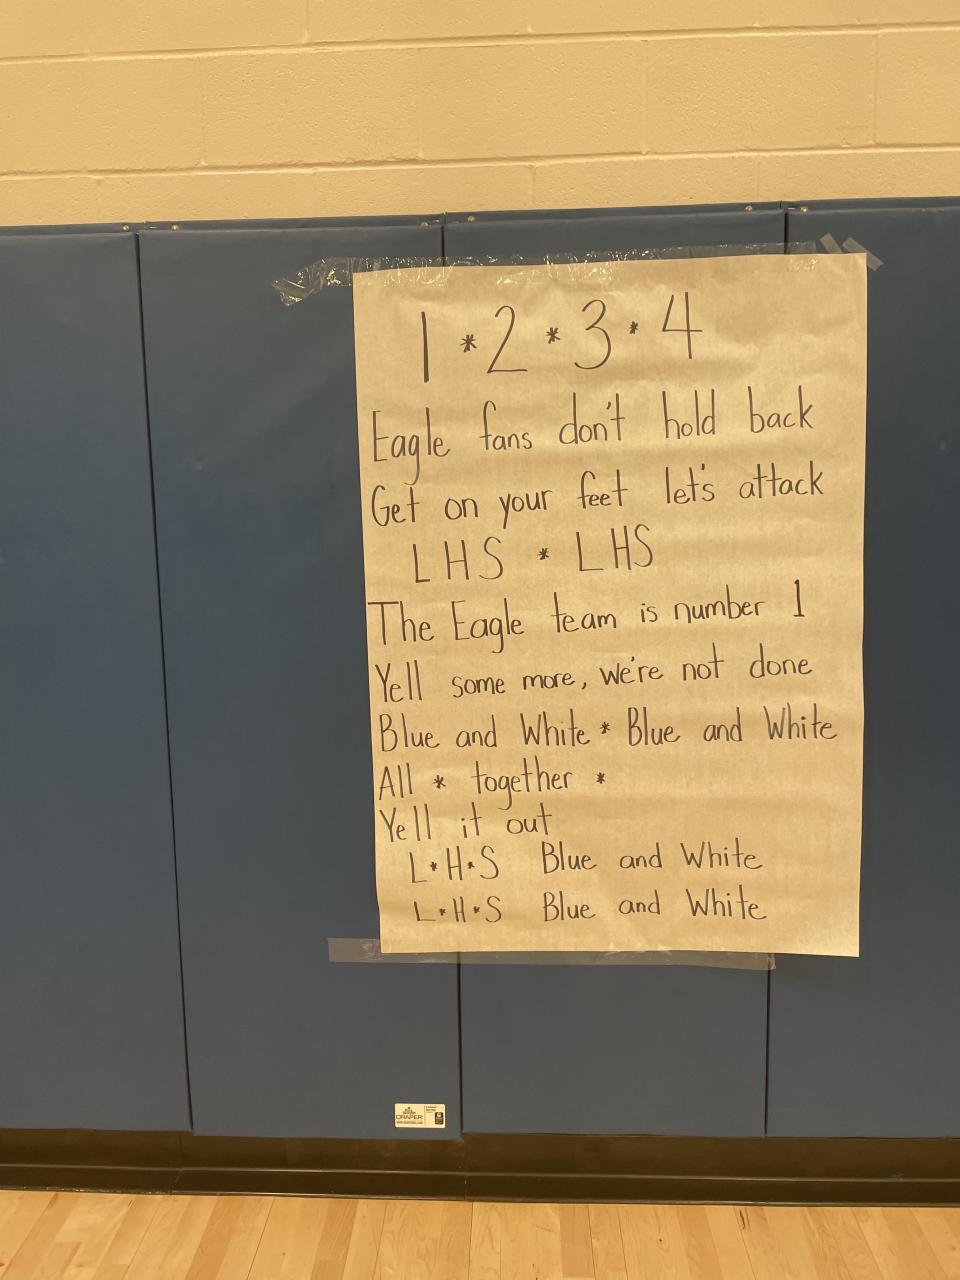 1 * 2 * 3 * 4
Eagle fans don't hold back
Get on your feet let's attack
LHS * LHS
The Eagle team is number 1
Yell some more, we're not done
Blue and White * Blue and White
All * together *
Yell it out
L*H*S Blue and White
L*H*S Blue and White
DRAPER